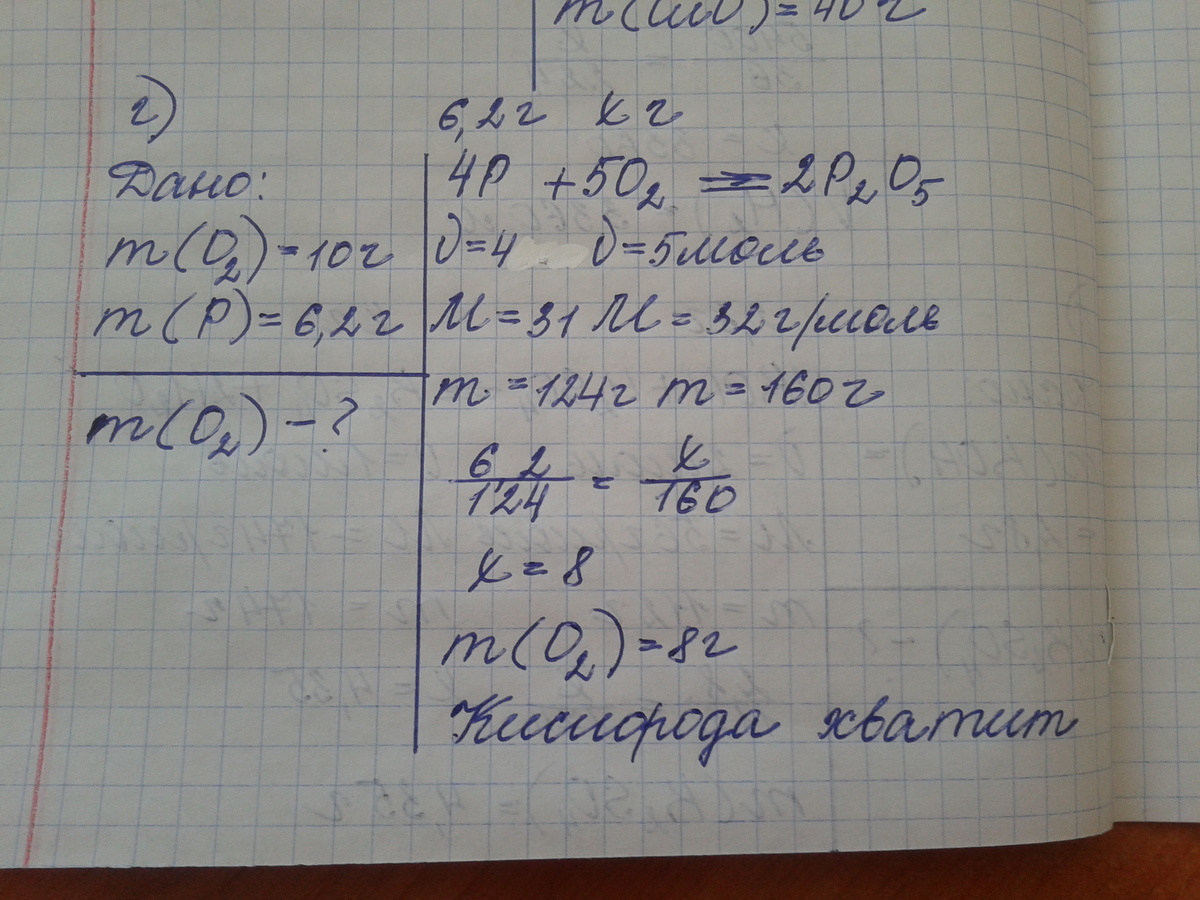 m(CuO) = 40 г
г)
Дано:
m(O₂) = 10 г
m(P) = 6,2 г
m(O₂) - ?
6,2 г x г
4P + 5O₂ = 2P₂O₅
ν = 4 ν = 5 моль
M = 31 M = 32 г/моль
m = 124 г m = 160 г
6,2/124 = x/160
x = 8
m(O₂) = 8 г
Кислорода хватит